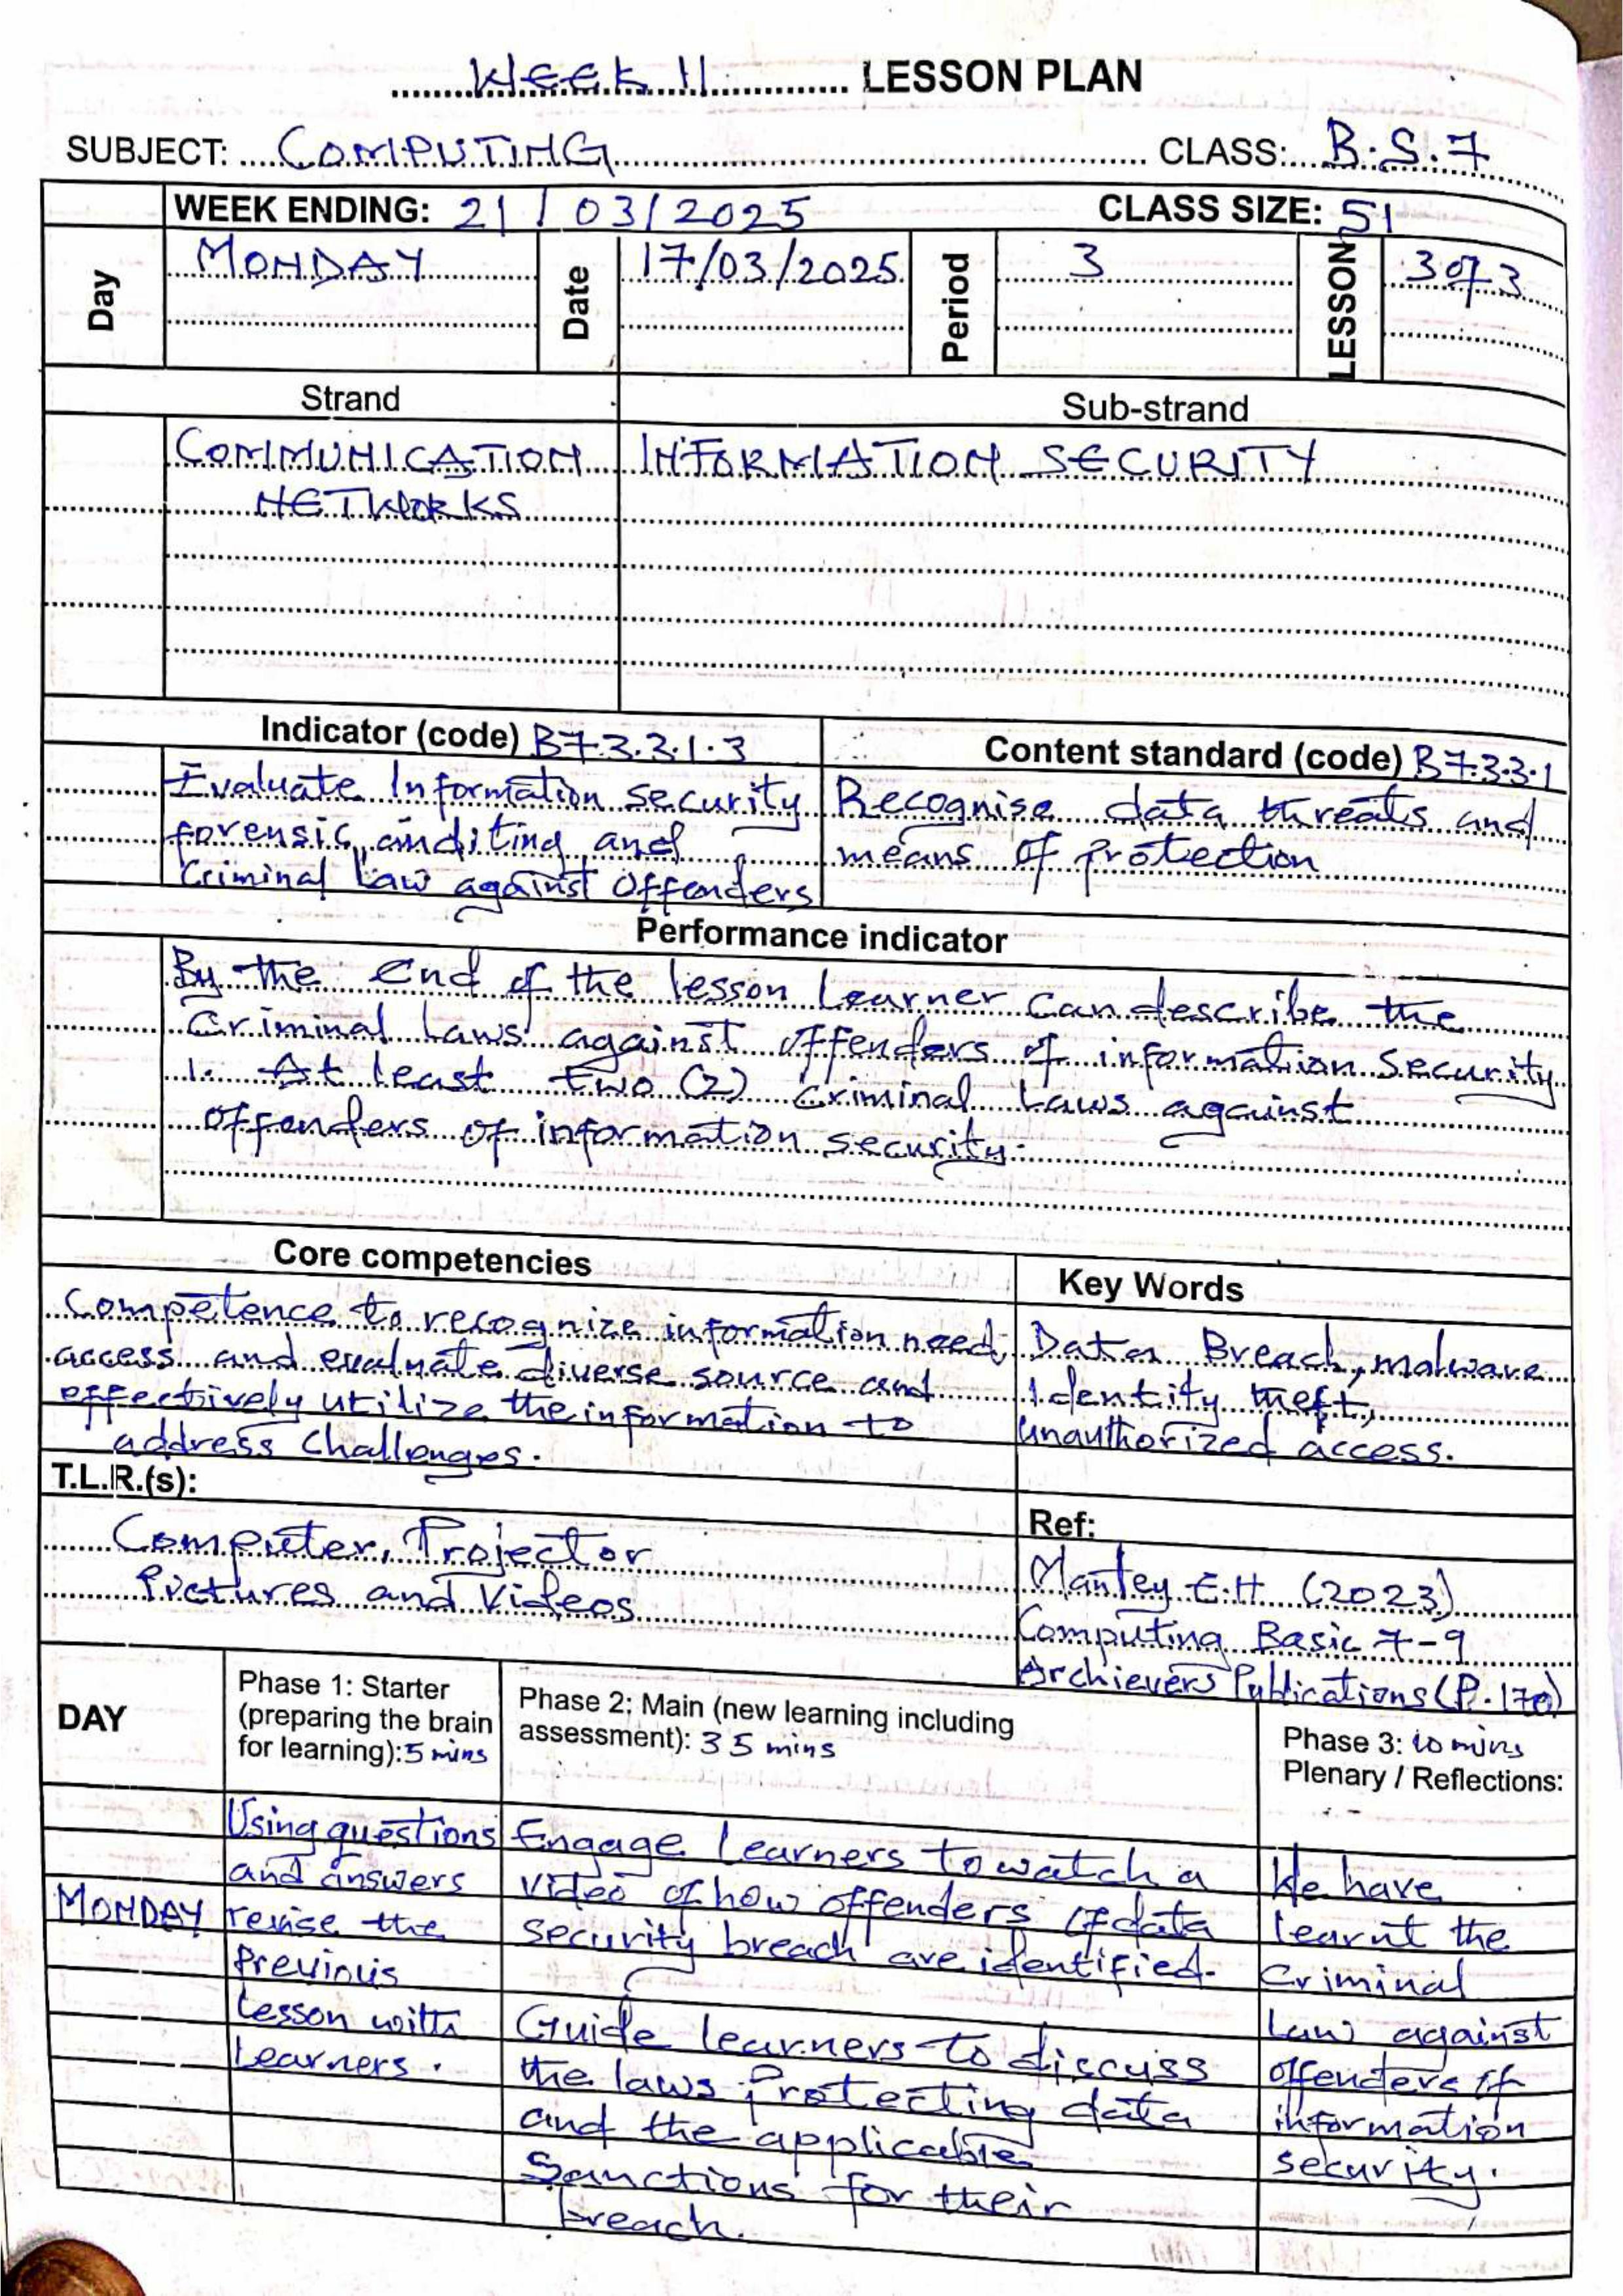 Week 11 LESSON PLAN
SUBJECT: COMPUTING CLASS: B.S.7
WEEK ENDING: 21/03/2025 CLASS SIZE: 51
Day MONDAY Date 17/03/2025 Period 3 LESSON 3 of 3
Strand Sub-strand
COMMUNICATION INFORMATION SECURITY
NETWORKS
Indicator (code) B7.3.3.1.3 Content standard (code) B7.3.3.1
Evaluate Information security Recognise data threats and
forensic auditing and means of protection
Criminal Law against Offenders
Performance indicator
By the end of the lesson Learner can describe the
Criminal Laws against offenders of information security
1. At least two (2) Criminal Laws against
offenders of information security.
Core competencies Key Words
Competence to recognize information need, Data Breach, malware
access and evaluate diverse source and Identity theft,
effectively utilize the information to unauthorized access.
address challenges.
T.L.R.(s): Ref:
Computer, Projector Mantey E.H. (2023)
Pictures and Videos Computing Basic 7-9
Archievers Publications (P. 170)
DAY
Phase 1: Starter
(preparing the brain
for learning): 5 mins
Phase 2: Main (new learning including
assessment): 35 mins
Phase 3: 10 mins
Plenary / Reflections:
MONDAY
Using questions
and answers
revise the
previous
Lesson with
Learners.
Engage learners to watch a
video of how offenders of data
security breach are identified.
Guide learners to discuss
the laws protecting data
and the applicable
Sanctions for their
breach.
We have
learnt the
Criminal
Law against
offenders of
information
security.